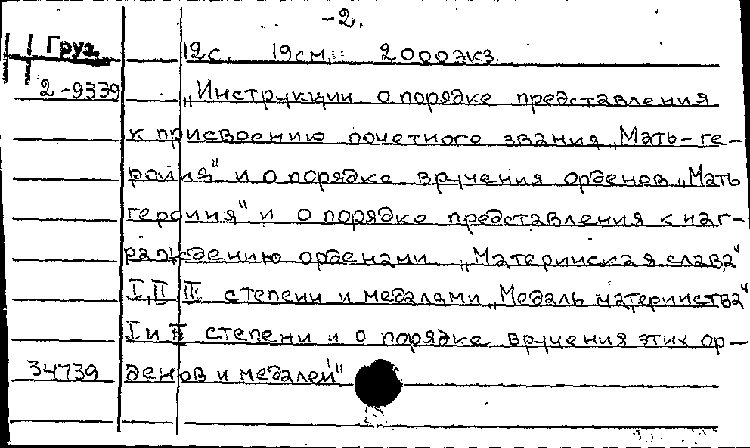 -2.
Груз. 12с. 19см. 2000экз.
2-9339 „Инструкции о порядке представления
к присвоению почетного звания „Мать-ге-
роиня" и о порядке вручения орденов „Мать
героиня" и о порядке представления к наг-
раждению орденами „Материнская слава"
I, II III степени и медалями „Медаль материнства"
I и II степени и о порядке вручения этих ор-
34739 денов и медалей"